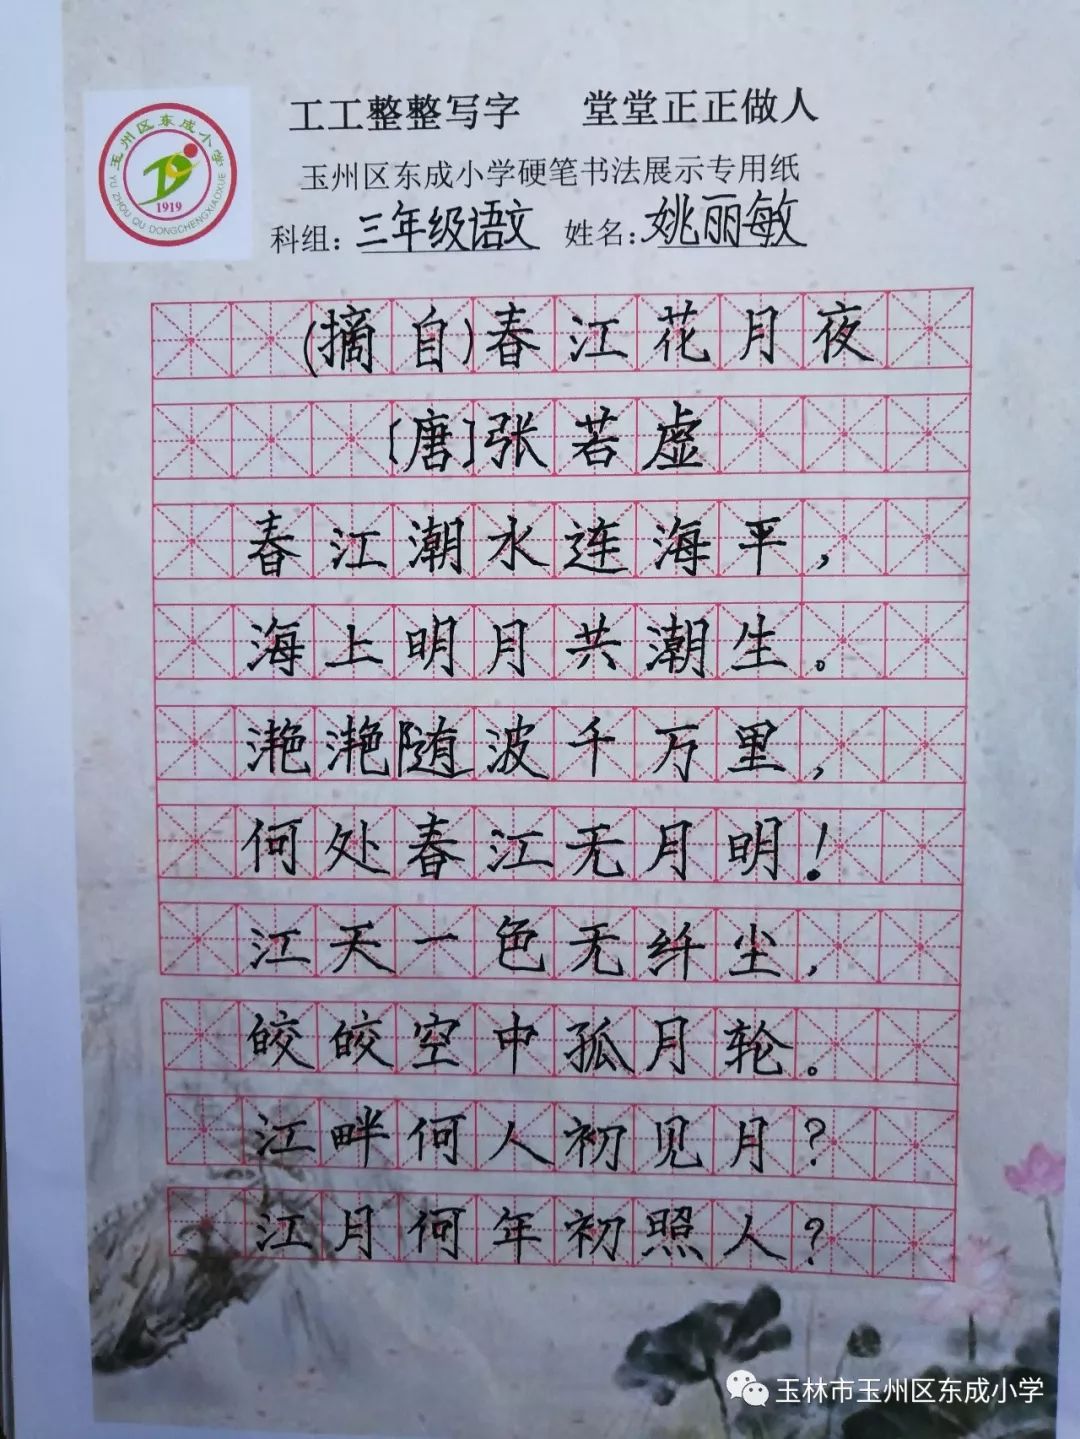 玉州区东成小学
YU ZHOU QU DONGCHENGXIAOXUE
1919
工工整整写字 堂堂正正做人
玉州区东成小学硬笔书法展示专用纸
科组：三年级语文 姓名：姚丽敏
(摘自)春江花月夜
[唐]张若虚
春江潮水连海平，
海上明月共潮生。
滟滟随波千万里，
何处春江无月明！
江天一色无纤尘，
皎皎空中孤月轮。
江畔何人初见月？
江月何年初照人？
玉林市玉州区东成小学